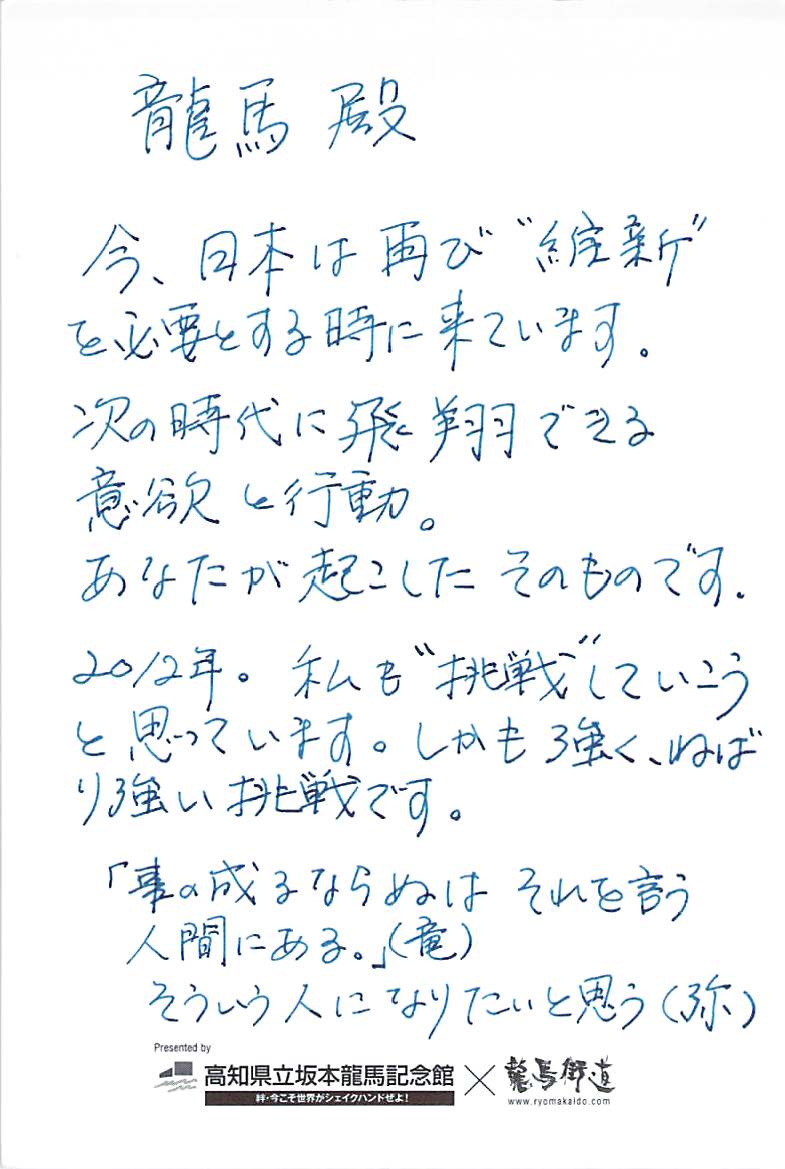 龍馬 殿
今、日本は再び“維新”
を必要とする時に来ています。
次の時代に飛翔できる
意欲と行動。
あなたが起こしたそのものです。
2012年。私も“挑戦”していこう
と思っています。しかも強く、ねば
り強い挑戦です。
「事の成るならぬは それを言う
人間にある。」(竜)
そういう人になりたいと思う(弥)
Presented by
高知県立坂本龍馬記念館×龍馬街道
絆・今こそ世界がシェイクハンドぜよ!
www.ryomakaido.com